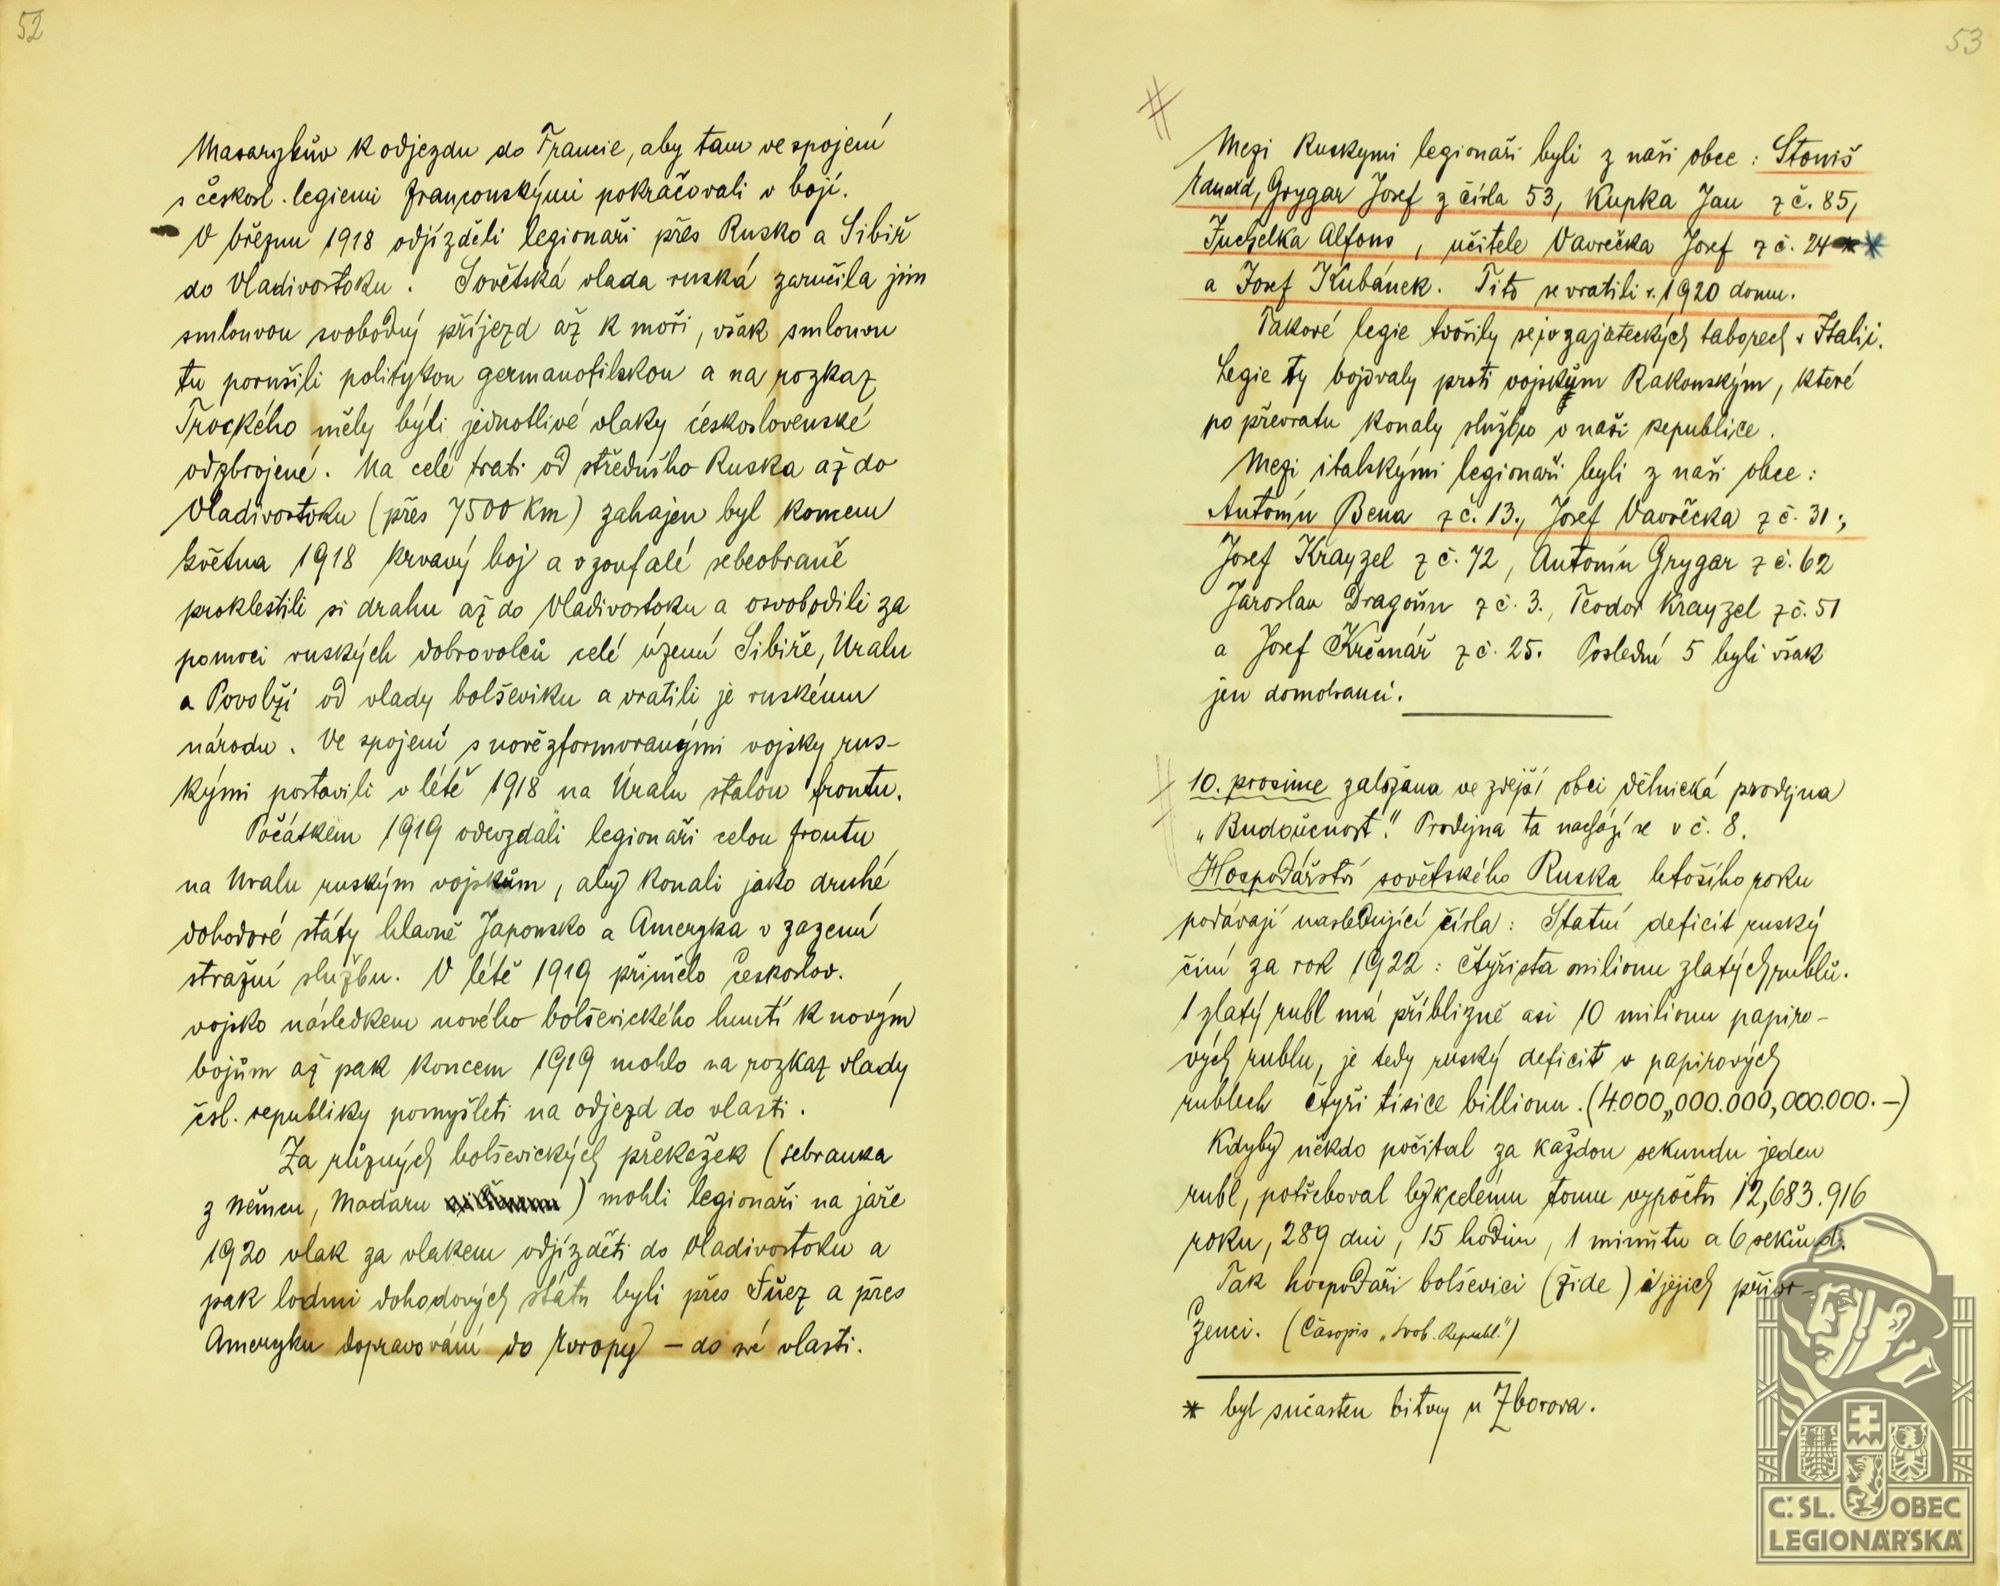 52
Masarykův k odjezdu do Francie, aby tam ve spojení
s českosl. legiemi francouskými pokračovali v bojí.
V březnu 1918 odjížděli legionaři přes Rusko a Sibiř
do Vladivostoku. Sovětská vlada ruská zaručila jim
smlouvou svobodný příjezd až k moři, však smlouvu
tu porušili politykou germanofilskou a na rozkaz
Trockého měly býti jednotlivé vlaky československé
odzbrojené. Na celé trati od středního Ruska až do
Vladivostoku (přes 7500 Km) zahajen byl koncem
května 1918 krvavý boj a v zoufalé sebeobraně
proklestili si drahu až do Vladivostoku a osvobodili za
pomoci ruských dobrovolců celé území Sibiře, Uralu
a Povolží od vlady bolševiku a vratili je ruskému
národu. Ve spojení s nově zformovanými vojsky rus-
kými postavili v létě 1918 na Úralu stalou frontu.
Počátkem 1919 odevzdali legionaři celou frontu
na Uralu ruským vojskům, aby konali jako druhé
dohodové státy hlavně Japonsko a Ameryka v zazemí
stražní službu. V létě 1919 přimělo českoslov.
vojsko následkem nového bolševického hnutí k novým
bojům až pak koncem 1919 mohlo na rozkaz vlady
čsl. republiky pomyšleti na odjezd do vlasti.
Za různých bolševických překažek (sebranka
z Němcu, Maďaru ) mohli legionaři na jaře
1920 vlak za vlakem odjížděti do Vladivostoku a
pak loďmi dohodových státu byli přes Suez a přes
Ameryku dopravováni do Evropy – do své vlasti.
53
Mezi Ruskymi legionaři byli z naši obce: Stoniš
Eduard, Grygar Josef z čísla 53, Kupka Jan z č. 85,
Juchelka Alfons, učitele Vavrečka Josef z č. 24 * *
a Josef Kubánek. Tito se vratili r. 1920 domu.
Takové legie tvořily se i v zajateckých taborech v Italii.
Legie ty bojovaly proti vojským Rakouským, které
po převratu konaly službu v naši republice.
Mezi italskými legionaři byli z naši obce:
Antonín Bena z č. 13., Josef Vavrečka z č. 31.,
Josef Krayzel z č. 72, Antonín Grygar z č. 62
Jaroslav Dragoun z č. 3., Teodor Krayzel z č. 51
a Josef Krčmář z č. 25. Poslední 5 byli však
jen domobranci.
10. prosince založana ve zdejší obci dělnická prodejna
„Budoucnost“. Prodejna ta nachází se v č. 8.
Hospodářství sovětského Ruska letošího roku
podávají nasledující čísla: Statní deficit ruský
činí za rok 1922: čtyřista milionu zlatých rublů.
1 zlatý rubl má přiblizně asi 10 milionu papiro-
vých rublu, je tedy ruský deficit v papirových
rublech čtyři tisice billionu. (4.000„000.000,000.000.–)
Kdyby někdo počital za každou sekundu jeden
rubl, potřeboval by k celému tomu vypočtu 12,683.916
roku, 289 dni, 15 hodin, 1 minutu a 6 sekund.
Tak hospodaři bolševici (židé) i jejich přivr-
ženci. (Časopis „Svob. Republ.“)
* byl sučasten bitvy u Zborova.
Č. SL. OBEC
LEGIONÁŘSKÁ